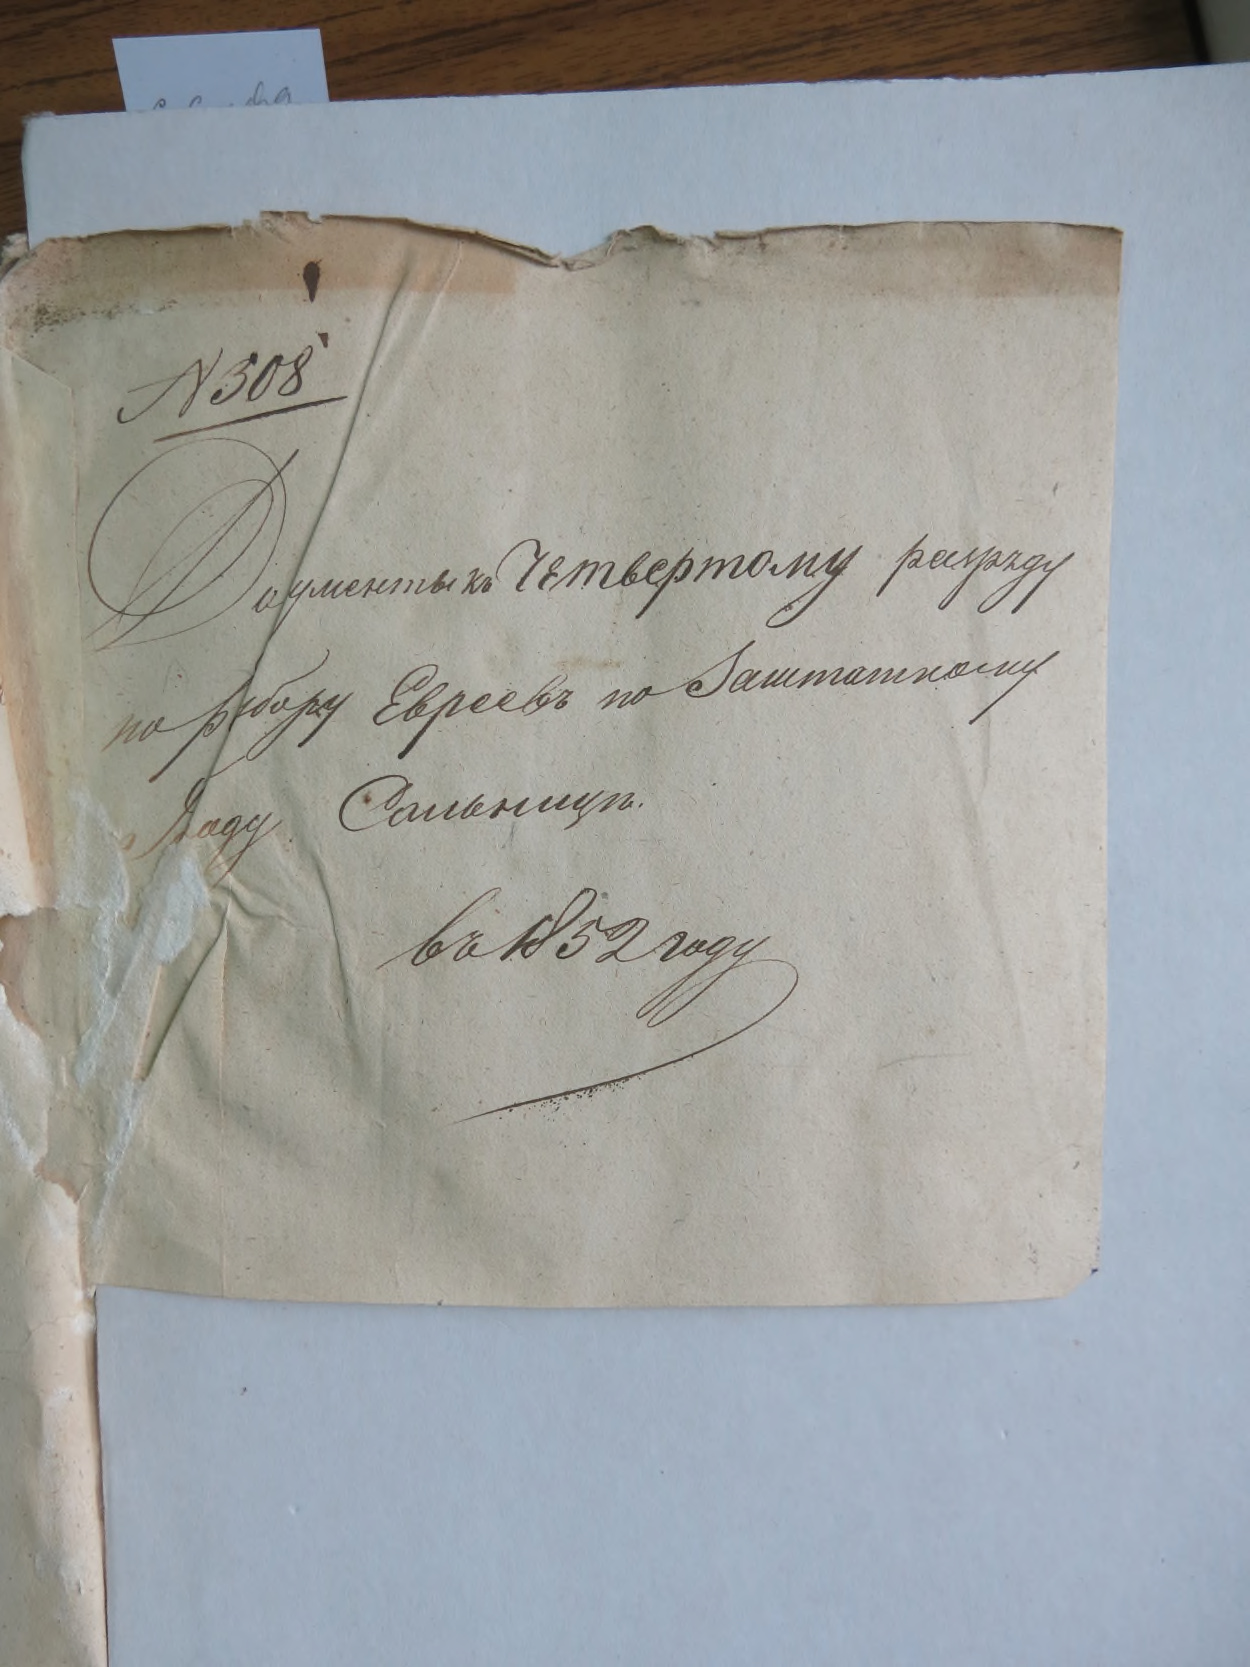 N 308
Документы къ Четвертому разряду
по разбору Евреевъ по Заштатному
Граду Сальница.
въ 1852 году